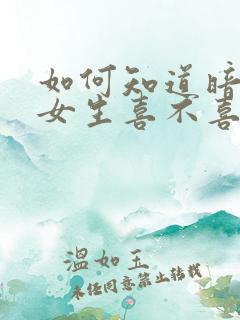 如何知道暗
女生喜不喜
温如玉
未经同意禁止转载